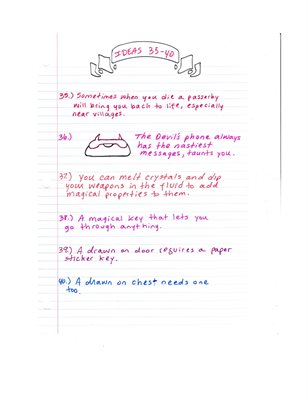 IDEAS 35-40
35.) Sometimes when you die a passerby
will bring you back to life, especially
near villages.
36.) The Devil's phone always
has the nastiest
messages, taunts you.
37.) You can melt crystals and dip
your weapons in the fluid to add
magical properties to them.
38.) A magical key that lets you
go through anything.
39.) A drawn on door requires a paper
sticker key.
40.) A drawn on chest needs one
too.